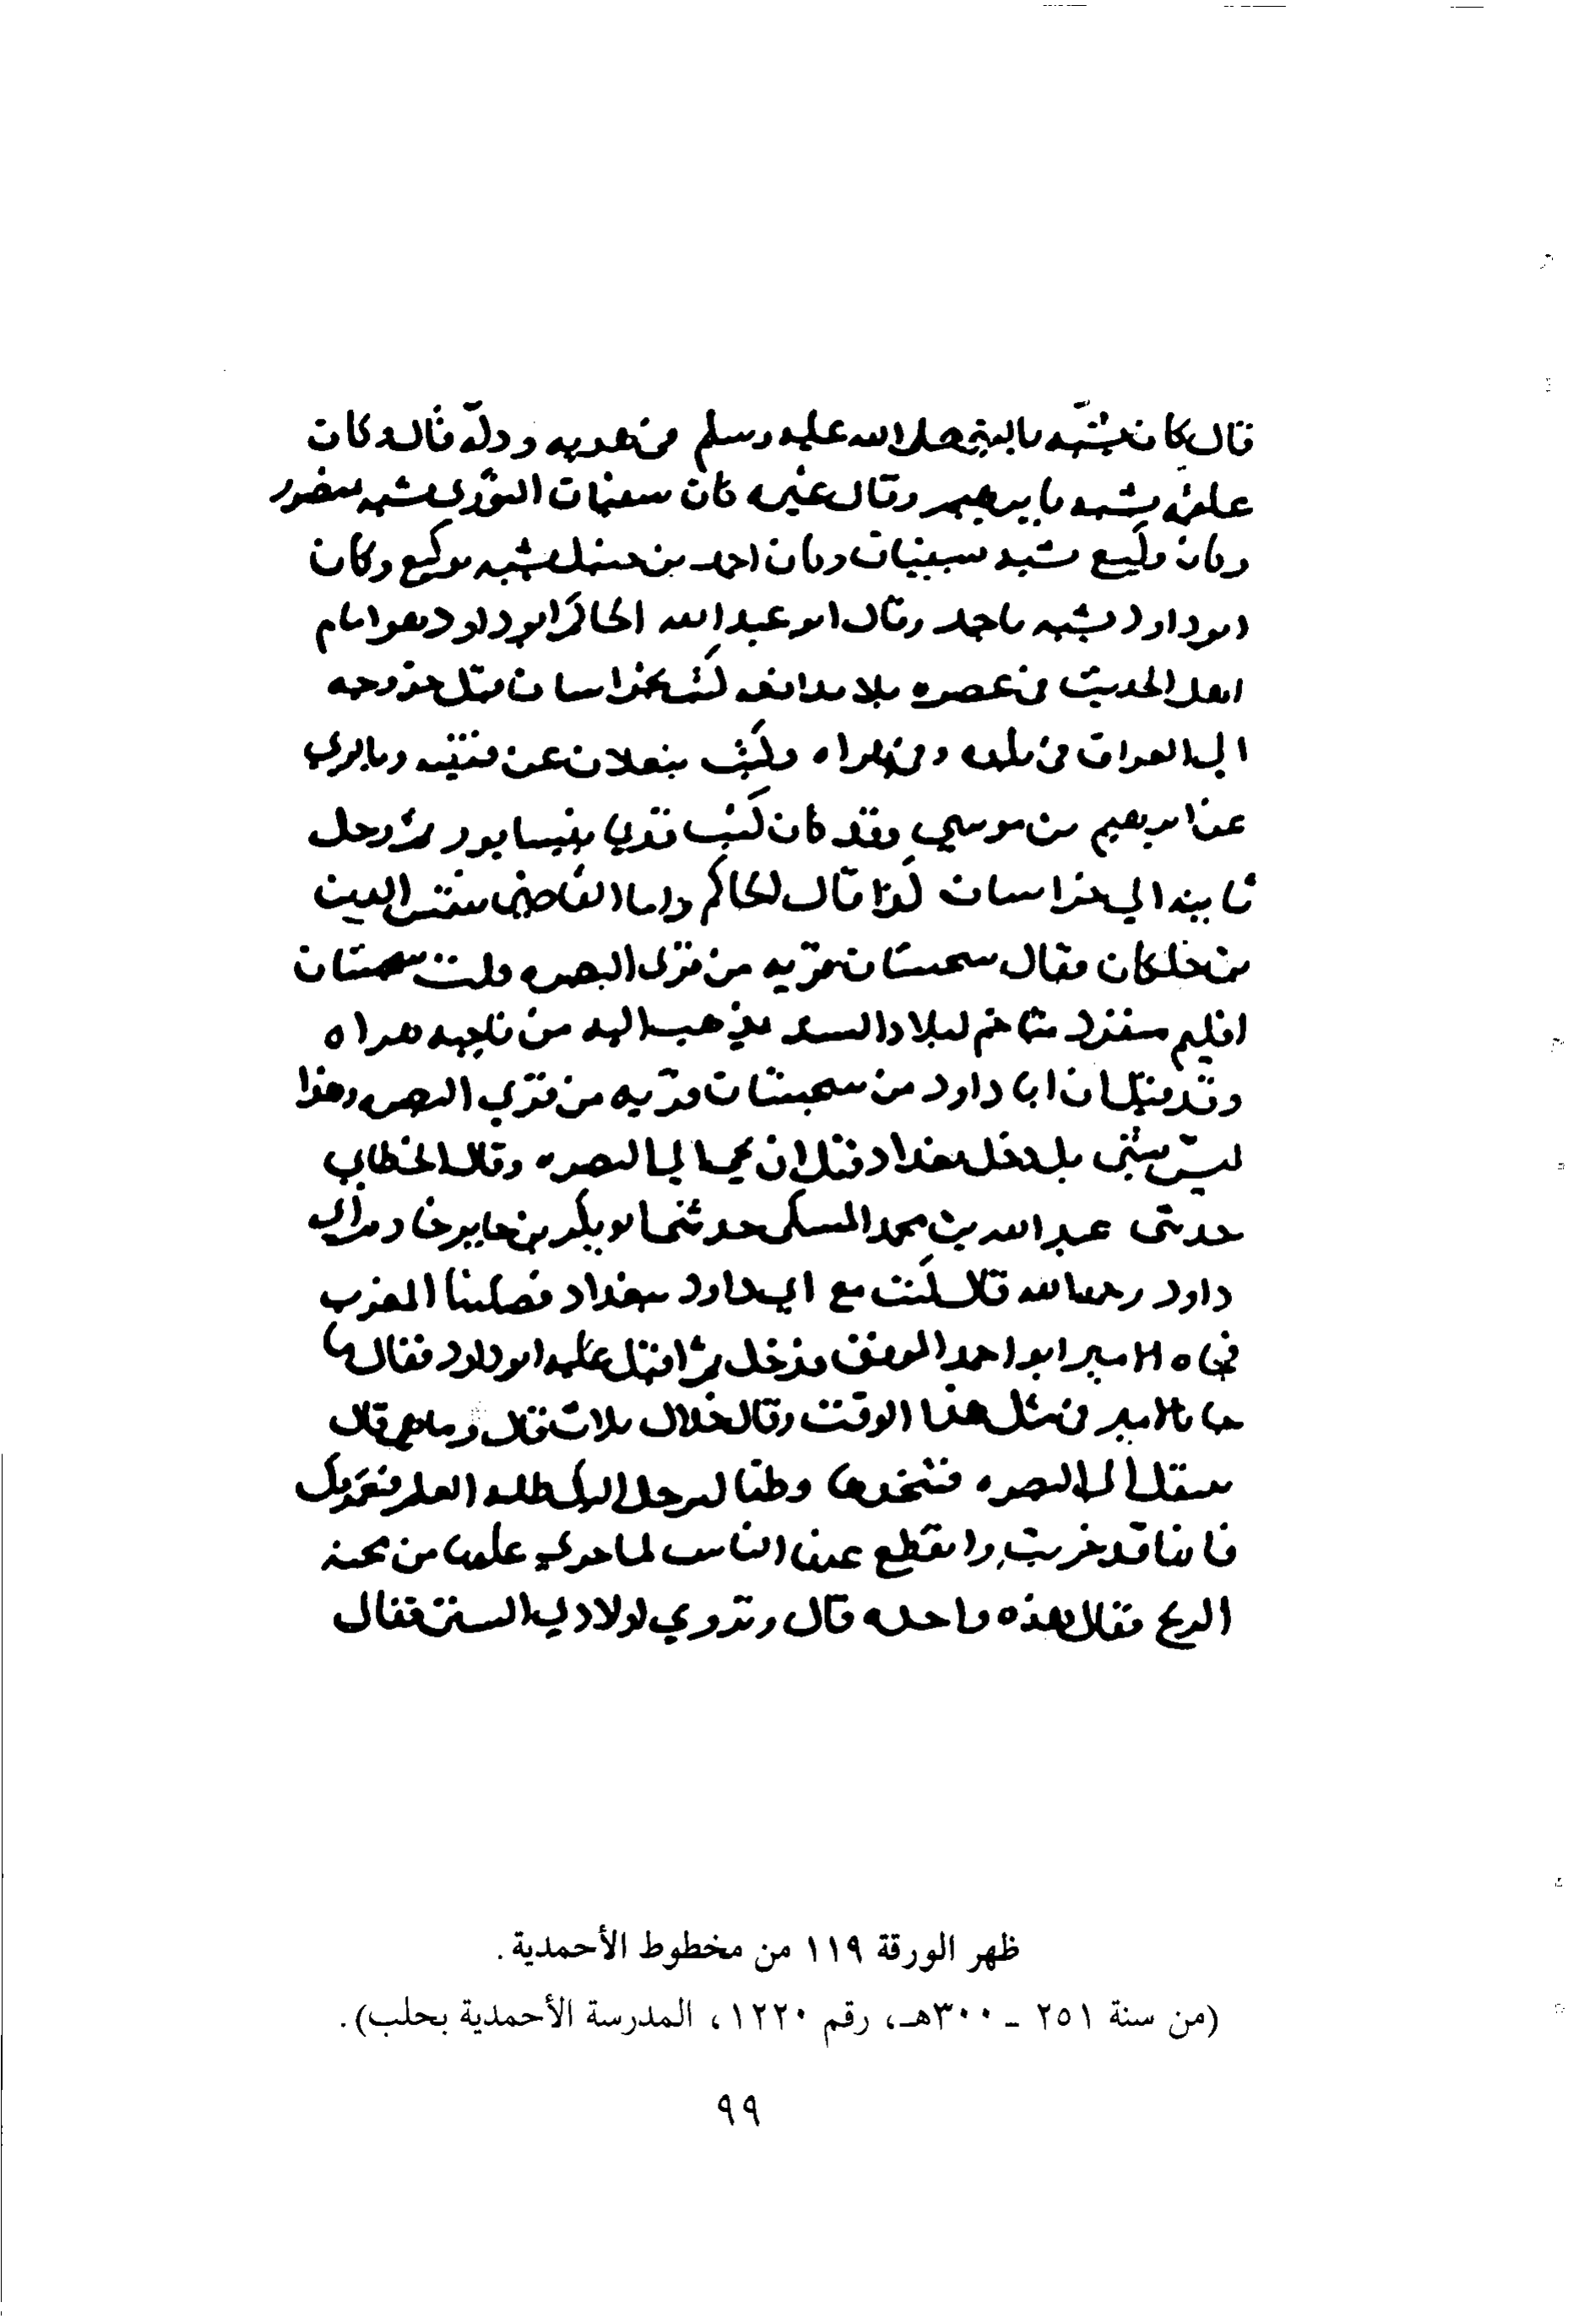 قال كان يشبه بالنبي صلى الله عليه وسلم في هديه ودله قال وكان
علقمة يشبه بابرهيم وقال غيره كان سفيان الثوري يشبه بمنصور
وكان وكيع يشبه بسفيان وكان احمد بن حنبل يشبه بوكيع وكان
ابو داود يشبه باحمد وقال ابو عبد الله الحاكم ابو داود هو امام
اهل الحديث في عصره بلا مدافعه كتب بخراسان قبل خروجه
الى العراق في بلده وفي هراه وكتب ببغلان عن قتيبه وبالري
عن ابرهيم بن موسى وقد كان كتب قديما بنيسابور ثم رحل
بابنه الى خراسان كذا قال الحاكم واما القاضي شمس الدين
بن خلكان فقال سجستان قريه من قرى البصره قلت سجستان
اقليم منفرد متاخم لبلاد السند يذهب اليه من ناحيه هراه
وقد قيل ان ابا داود من سجستان قريه من قرى البصره وهذا
ليس بشي بل دخل بغداد قبل ان يجي الى البصره وقال الخطابي
حدثني عبد الله بن محمد المسكي حدثني ابو بكر بن جابر خادم ابي
داود رحمه الله قال كنت مع ابي داود ببغداد فصلينا المغرب
فجاه الامير ابو احمد الموفق فدخل ثم اقبل عليه ابو داود فقال ما
جا بالامير في مثل هذا الوقت وقال خلال ثلاث قال وما هي قال
تنتقل الى البصره فتتخذها وطنا ليرحل اليك طلبه العلم فتعمر بك
فانها قد خربت وانقطع عنها الناس لما جرى عليها من محنة
الزنج فقال هذه واحده قال وتروي لاولادي السنن فقال
ظهر الورقة ١١٩ من مخطوط الأحمدية .
(من سنة ٢٥١ – ٣٠٠هـ، رقم ١٢٢٠، المدرسة الأحمدية بحلب).
٩٩